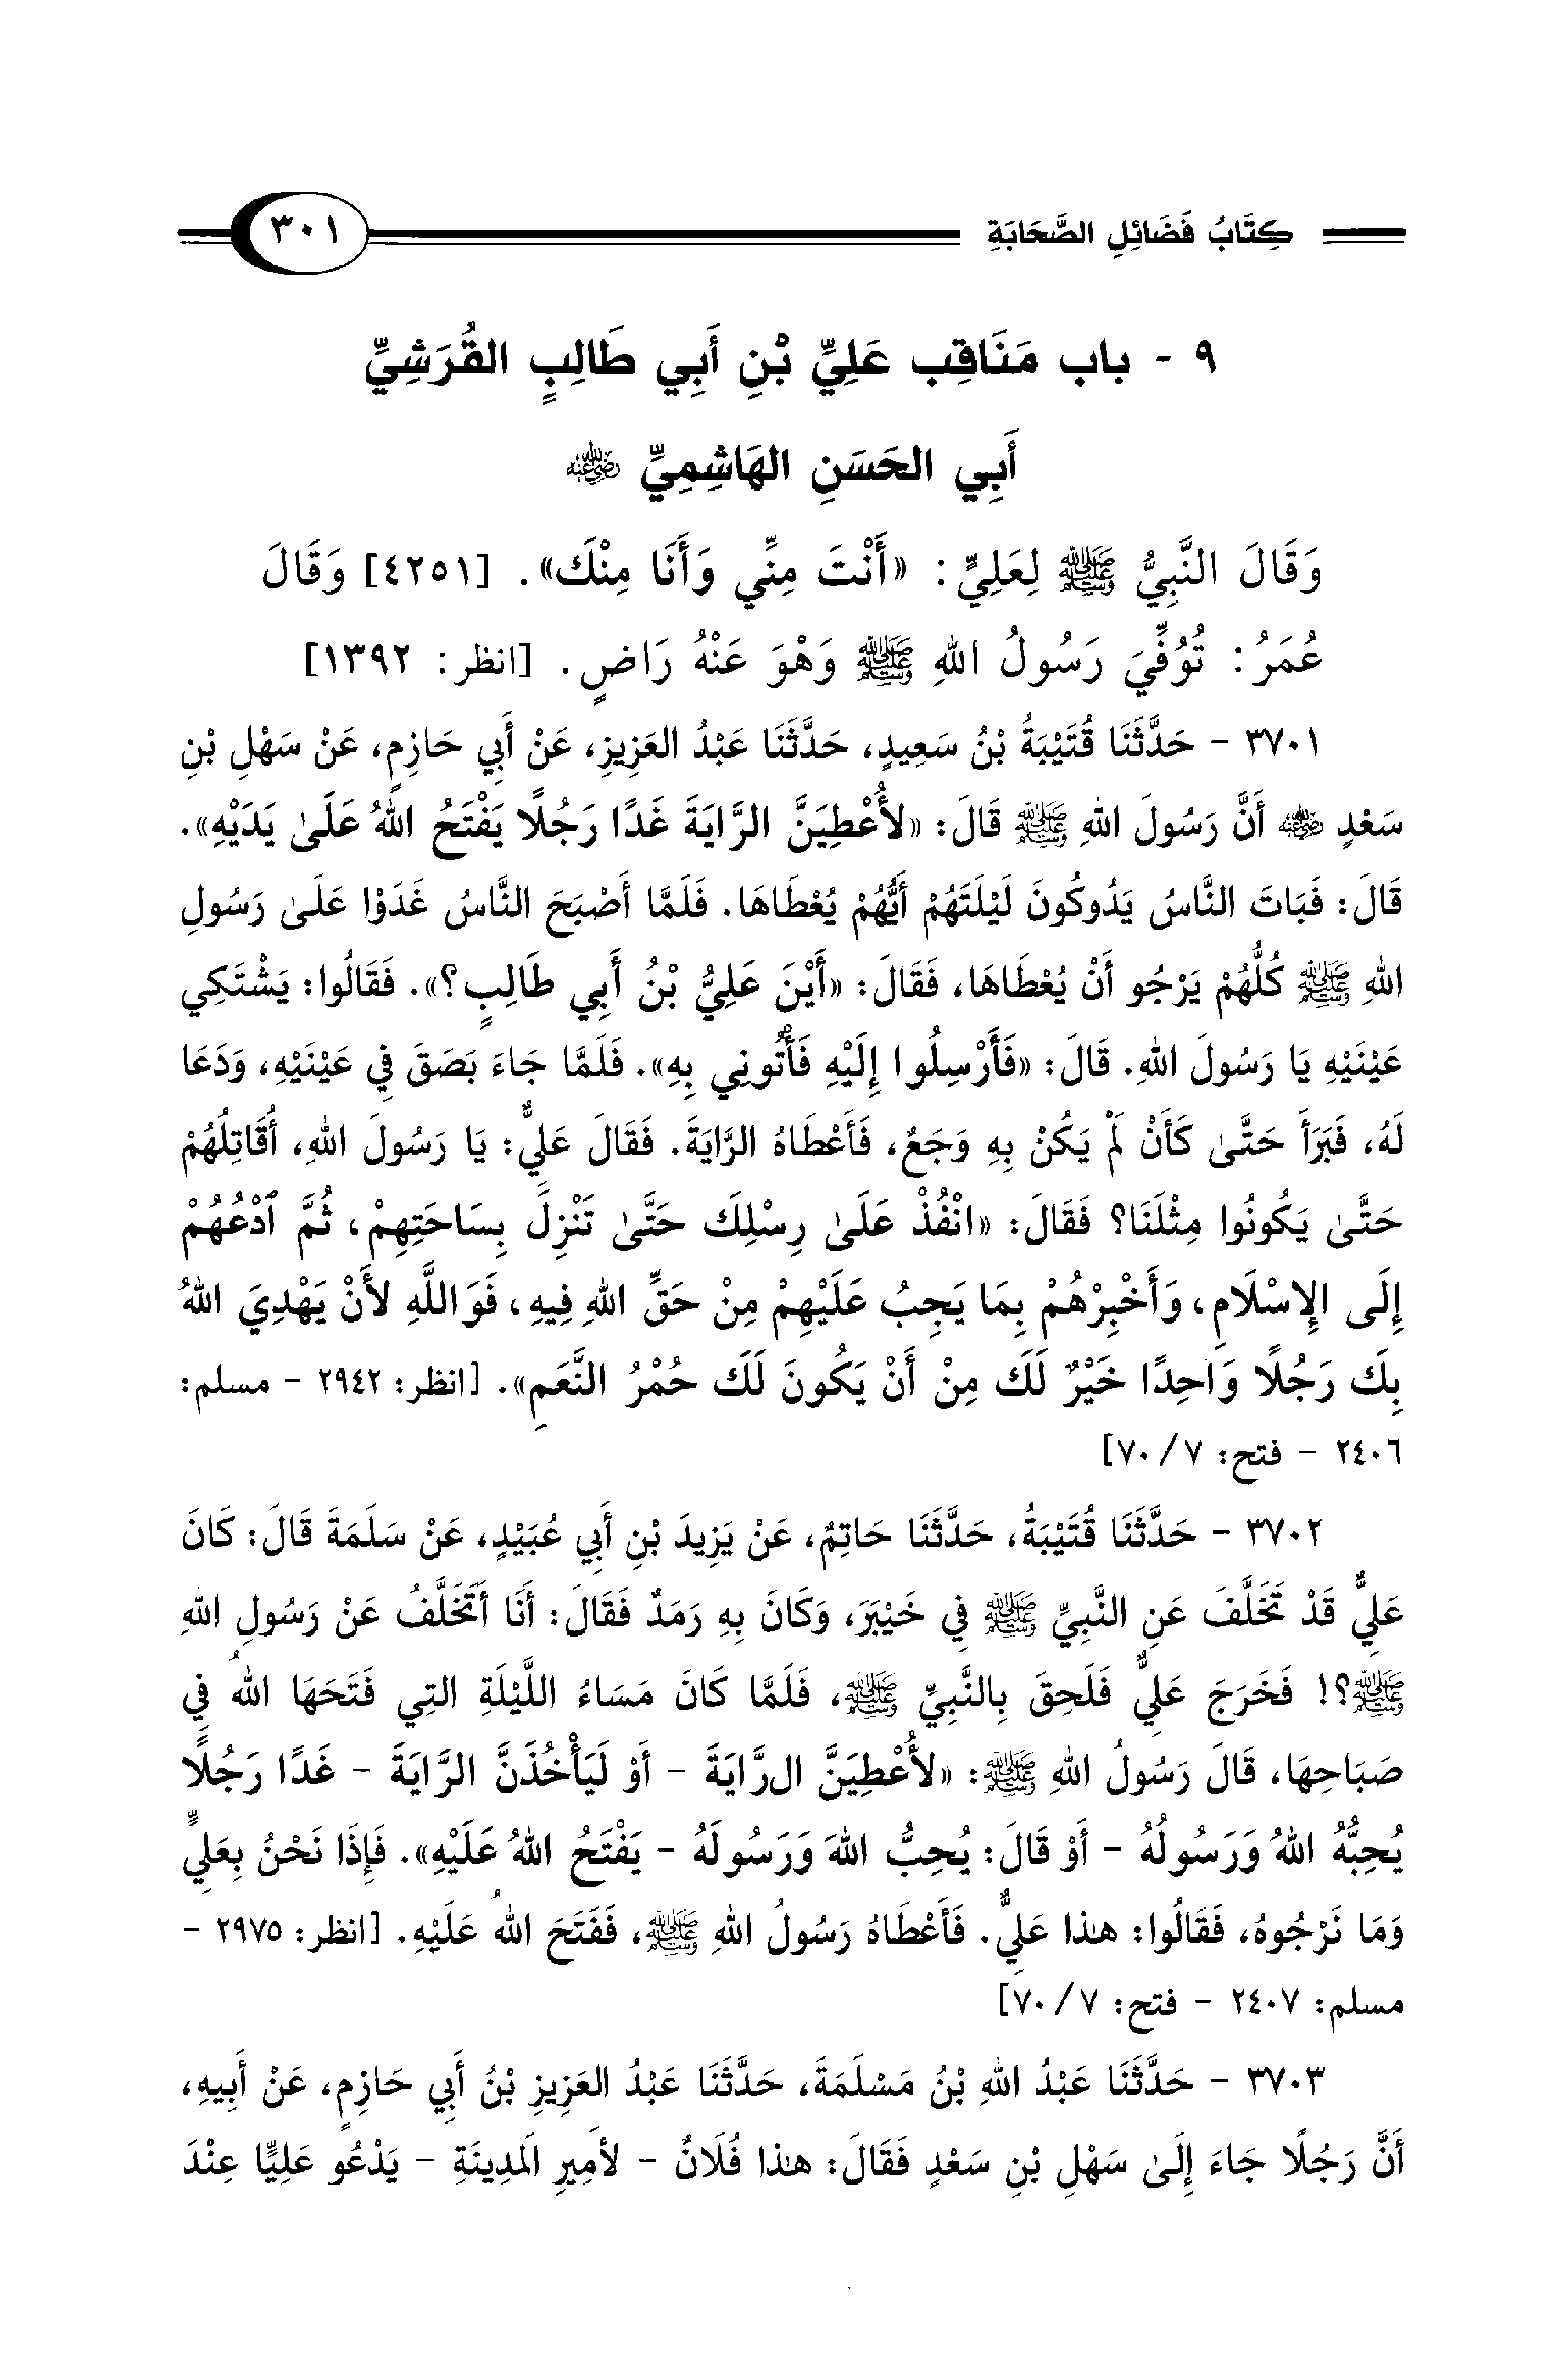 كِتَابُ فَضَائِلِ الصَّحَابَةِ ٣٠١
٩ - باب مَنَاقِب عَلِيِّ بْنِ أَبِي طَالِبٍ القُرَشِيِّ
أَبِي الحَسَنِ الهَاشِمِيِّ رضي الله عنه
وَقَالَ النَّبِيُّ ﷺ لِعَلِيٍّ: «أَنْتَ مِنِّي وَأَنَا مِنْكَ». [٤٢٥١] وَقَالَ
عُمَرُ: تُوُفِّيَ رَسُولُ اللهِ ﷺ وَهْوَ عَنْهُ رَاضٍ. [انظر: ١٣٩٢]
٣٧٠١ - حَدَّثَنَا قُتَيْبَةُ بْنُ سَعِيدٍ، حَدَّثَنَا عَبْدُ العَزِيزِ، عَنْ أَبِي حَازِمٍ، عَنْ سَهْلِ بْنِ
سَعْدٍ رضي الله عنه أَنَّ رَسُولَ اللهِ ﷺ قَالَ: «لأُعْطِيَنَّ الرَّايَةَ غَدًا رَجُلًا يَفْتَحُ اللهُ عَلَىٰ يَدَيْهِ».
قَالَ: فَبَاتَ النَّاسُ يَدُوكُونَ لَيْلَتَهُمْ أَيُّهُمْ يُعْطَاهَا. فَلَمَّا أَصْبَحَ النَّاسُ غَدَوْا عَلَىٰ رَسُولِ
اللهِ ﷺ كُلُّهُمْ يَرْجُو أَنْ يُعْطَاهَا، فَقَالَ: «أَيْنَ عَلِيُّ بْنُ أَبِي طَالِبٍ؟». فَقَالُوا: يَشْتَكِي
عَيْنَيْهِ يَا رَسُولَ اللهِ. قَالَ: «فَأَرْسِلُوا إِلَيْهِ فَأْتُونِي بِهِ». فَلَمَّا جَاءَ بَصَقَ فِي عَيْنَيْهِ، وَدَعَا
لَهُ، فَبَرَأَ حَتَّىٰ كَأَنْ لَمْ يَكُنْ بِهِ وَجَعٌ، فَأَعْطَاهُ الرَّايَةَ. فَقَالَ عَلِيٌّ: يَا رَسُولَ اللهِ، أُقَاتِلُهُمْ
حَتَّىٰ يَكُونُوا مِثْلَنَا؟ فَقَالَ: «انْفُذْ عَلَىٰ رِسْلِكَ حَتَّىٰ تَنْزِلَ بِسَاحَتِهِمْ، ثُمَّ ٱدْعُهُمْ
إِلَى الإِسْلَامِ، وَأَخْبِرْهُمْ بِمَا يَجِبُ عَلَيْهِمْ مِنْ حَقِّ اللهِ فِيهِ، فَوَاللَّهِ لأَنْ يَهْدِيَ اللهُ
بِكَ رَجُلًا وَاحِدًا خَيْرٌ لَكَ مِنْ أَنْ يَكُونَ لَكَ حُمْرُ النَّعَمِ». [انظر: ٢٩٤٢ - مسلم:
٢٤٠٦ - فتح: ٧٠/٧]
٣٧٠٢ - حَدَّثَنَا قُتَيْبَةُ، حَدَّثَنَا حَاتِمٌ، عَنْ يَزِيدَ بْنِ أَبِي عُبَيْدٍ، عَنْ سَلَمَةَ قَالَ: كَانَ
عَلِيٌّ قَدْ تَخَلَّفَ عَنِ النَّبِيِّ ﷺ فِي خَيْبَرَ، وَكَانَ بِهِ رَمَدٌ فَقَالَ: أَنَا أَتَخَلَّفُ عَنْ رَسُولِ اللهِ
ﷺ؟! فَخَرَجَ عَلِيٌّ فَلَحِقَ بِالنَّبِيِّ ﷺ، فَلَمَّا كَانَ مَسَاءُ اللَّيْلَةِ التِي فَتَحَهَا اللهُ فِي
صَبَاحِهَا، قَالَ رَسُولُ اللهِ ﷺ: «لأُعْطِيَنَّ الرَّايَةَ - أَوْ لَيَأْخُذَنَّ الرَّايَةَ - غَدًا رَجُلًا
يُحِبُّهُ اللهُ وَرَسُولُهُ - أَوْ قَالَ: يُحِبُّ اللهَ وَرَسُولَهُ - يَفْتَحُ اللهُ عَلَيْهِ». فَإِذَا نَحْنُ بِعَلِيٍّ
وَمَا نَرْجُوهُ، فَقَالُوا: هٰذا عَلِيٌّ. فَأَعْطَاهُ رَسُولُ اللهِ ﷺ، فَفَتَحَ اللهُ عَلَيْهِ. [انظر: ٢٩٧٥ -
مسلم: ٢٤٠٧ - فتح: ٧٠/٧]
٣٧٠٣ - حَدَّثَنَا عَبْدُ اللهِ بْنُ مَسْلَمَةَ، حَدَّثَنَا عَبْدُ العَزِيزِ بْنُ أَبِي حَازِمٍ، عَنْ أَبِيهِ،
أَنَّ رَجُلًا جَاءَ إِلَىٰ سَهْلِ بْنِ سَعْدٍ فَقَالَ: هٰذا فُلَانٌ - لأَمِيرِ المَدِينَةِ - يَدْعُو عَلِيًّا عِنْدَ